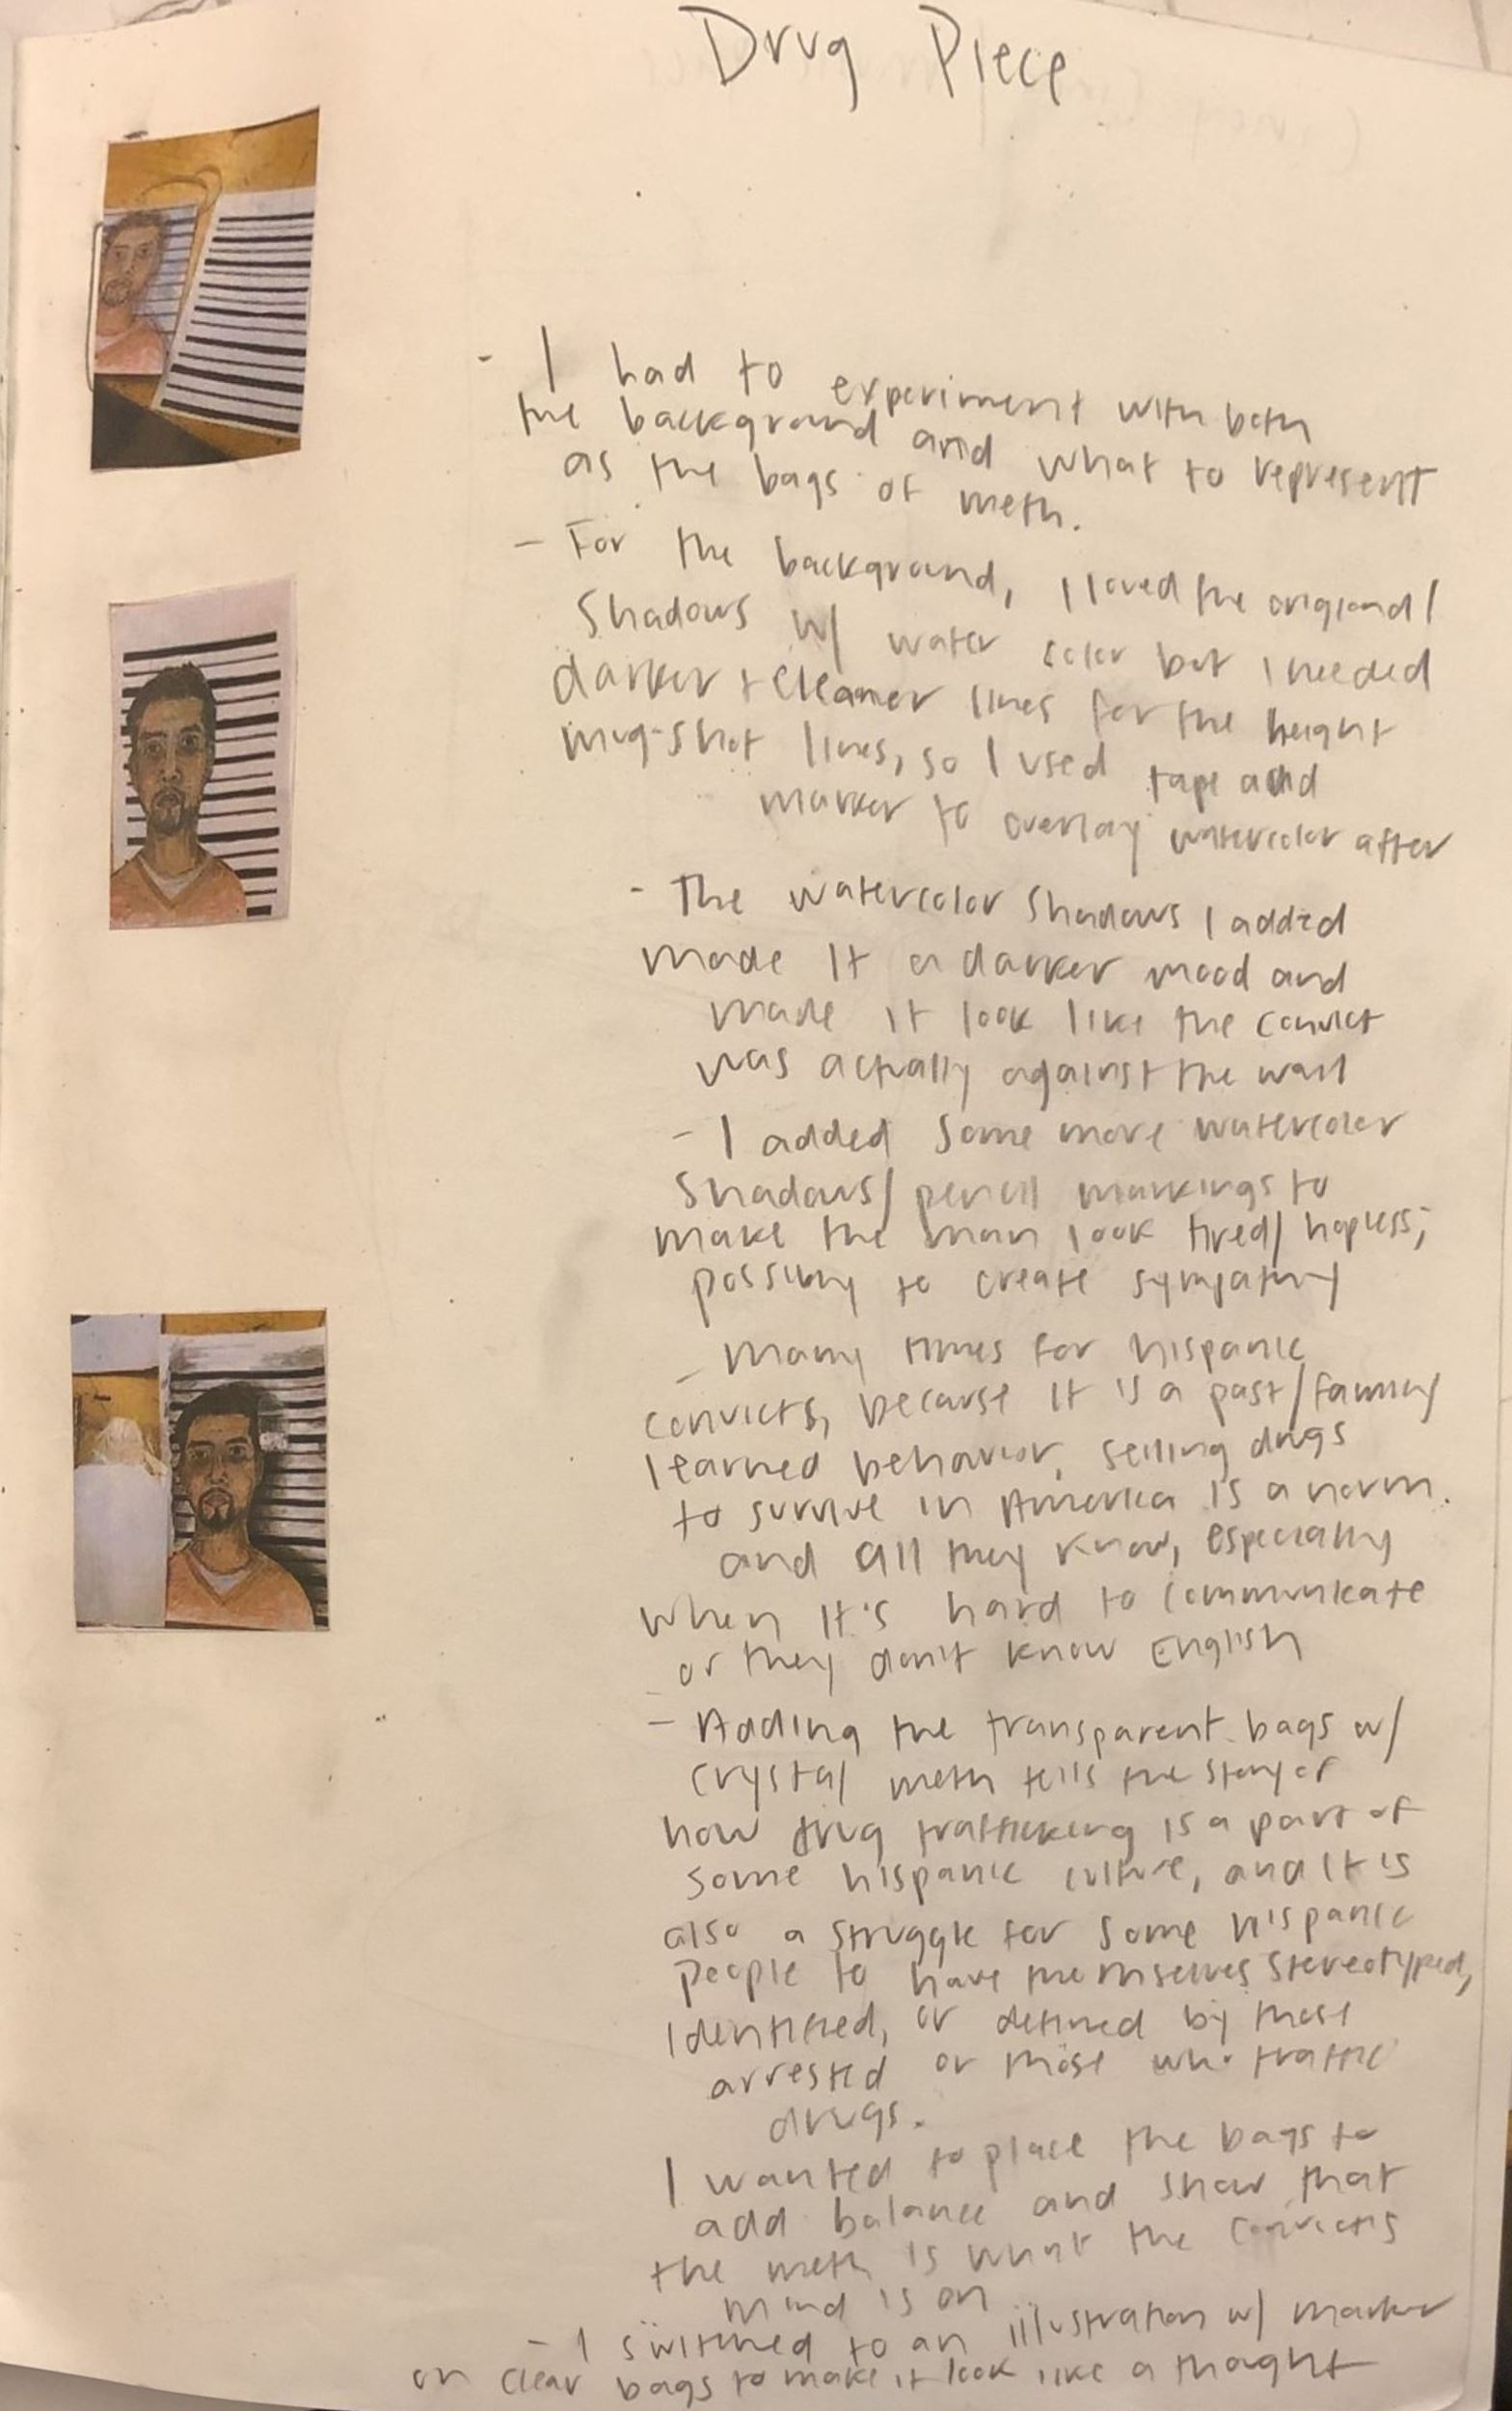 Drug Piece
- I had to experiment with both
the background and what to represent
as the bags of meth.
- For the background, I loved the original
Shadows w/ water color but I needed
darker + cleaner lines for the height
mug-shot lines, so I used tape and
marker to overlay watercolor after
- The watercolor shadows I added
made it a darker mood and
made it look like the convict
was actually against the wall
- I added some more watercolor
shadows/pencil markings to
make the man look tired/hopless;
possibly to create sympathy
- Many times for hispanic
convicts, because it is a past/family
learned behavior, selling drugs
to survive in America is a norm.
and all they know, especially
when it's hard to communicate
or they don't know English
- Adding the transparent bags w/
crystal meth tells the story of
how drug trafficking is a part of
some hispanic culture, and it is
also a struggle for some hispanic
people to have themselves stereotyped,
identified, or defined by those
arrested or those who traffic
drugs.
I wanted to place the bags to
add balance and show that
the meth is what the convicts
mind is on
- I switched to an illustration w/ marker
on clear bags to make it look like a thought